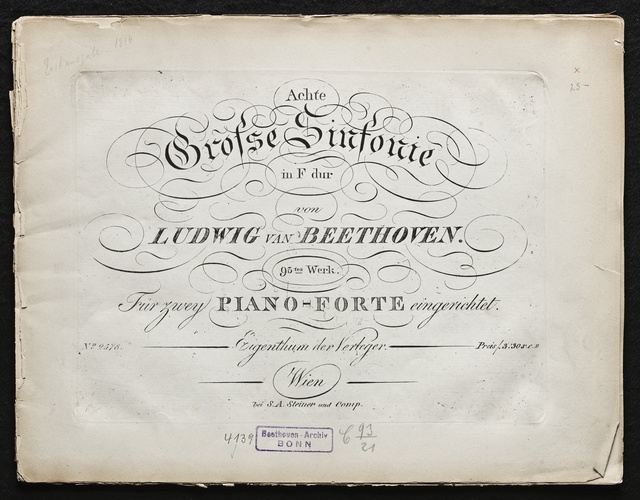 Achte
Große Sinfonie
in F dur
von
LUDWIG VAN BEETHOVEN.
95tes Werk.
Für zwey PIANO-FORTE eingerichtet.
Eigenthum der Verleger.
Wien
bei S. A. Steiner und Comp.
4139
Beethoven-Archiv
BONN
C 93
21